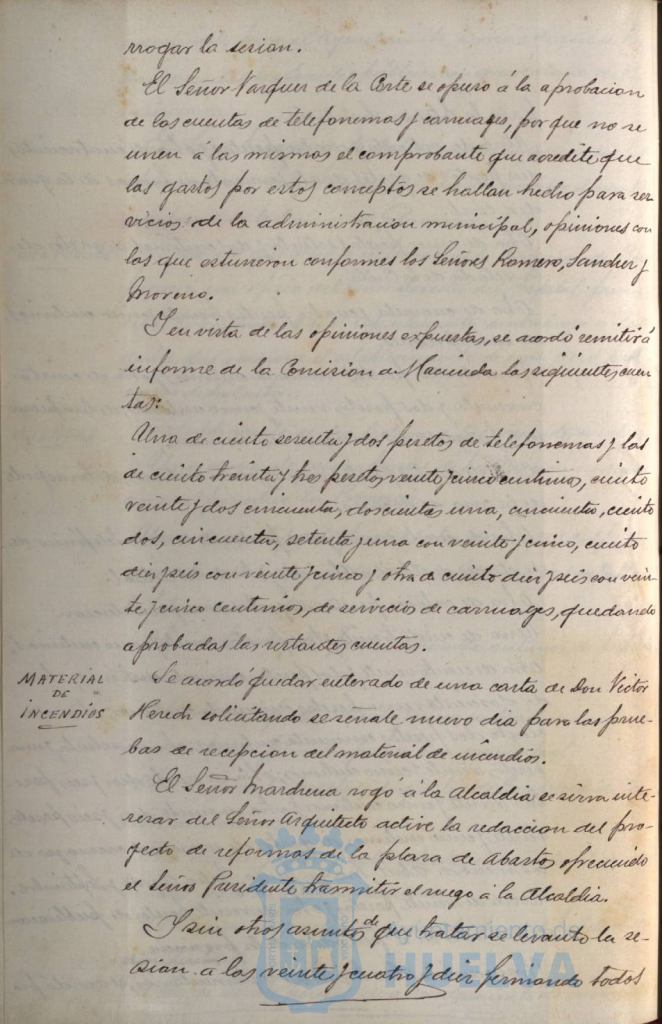 rrogar la sesion.
El Señor Vazquez de la Corte se opuso á la aprobacion
de las cuentas de telefonemas y carruages, porque no se
unen á las mismas el comprobante que acredite que
los gastos por estos conceptos se hallan hecho para ser-
vicios de la administracion municipal, opiniones con
las que estuvieron conformes los Señores Romero, Sanchez y
Moreno.
I en vista de las opiniones expuestas, se acordó remitir á
informe de la Comision de Hacienda las siguientes cuen-
tas:
Una de ciento sesenta y dos pesetas de telefonemas y las
de ciento treinta y tres pesetas veinte y cinco centimos, ciento
veinte y dos cincuenta, doscientas una, cincuenta, ciento
dos, cincuenta, setenta y una con veinte y cinco, ciento
diez y seis con veinte y cinco y otra de ciento diez y seis con vein-
te y cinco centimos, de servicios de carruages, quedando
aprobadas las restantes cuentas.
MATERIAL
DE
INCENDIOS
Se acordó quedar enterado de una carta de Don Victor
solicitando se señale nuevo dia para las prue-
bas de recepcion del material de incendios.
El Señor Marchena rogó á la Alcaldia se sirva inte-
resar del Señor Arquitecto active la redaccion del pro-
yecto de reformas de la plaza de Abastos ofreciendo
el Señor Presidente tramitir el ruego á la Alcaldia.
I sin otros asuntos de que tratar se levantó la se-
sion á las veinte y cuatro y diez firmando todos
Ayuntamiento de
HUELVA